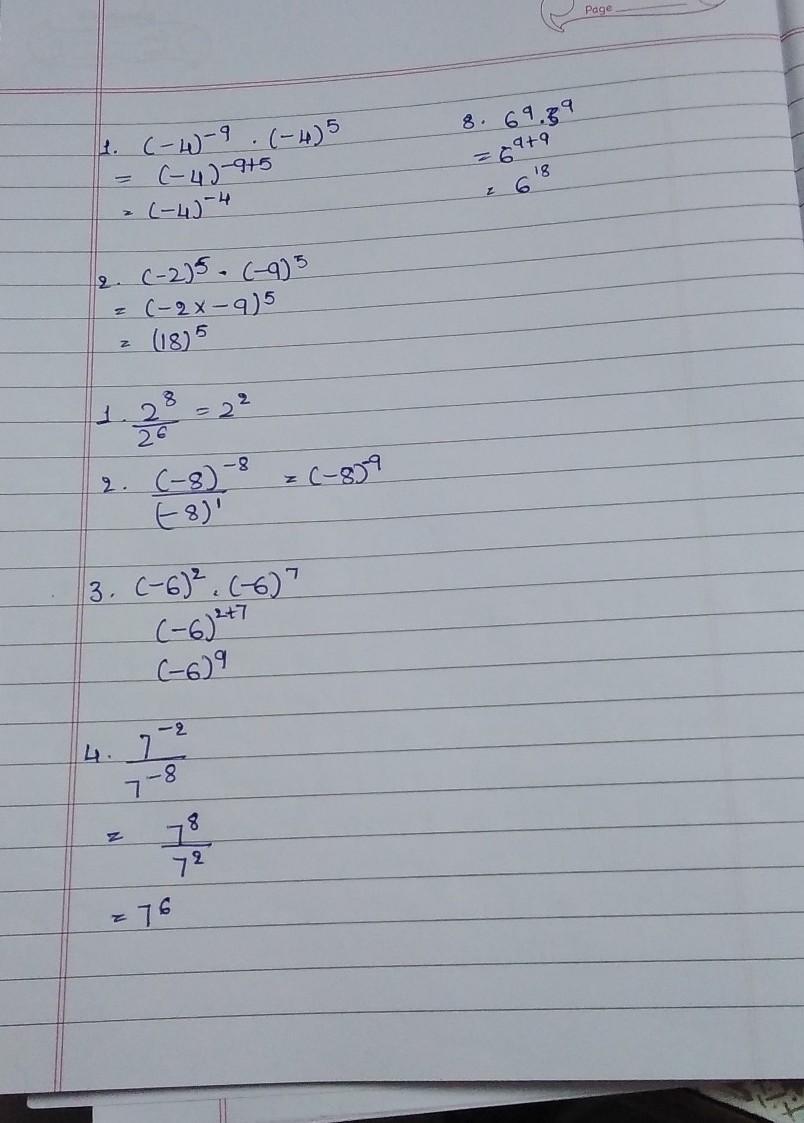 Page
1. (-4)^-9 . (-4)^5
= (-4)^-9+5
= (-4)^-4
2. (-2)^5 . (-9)^5
= (-2x-9)^5
= (18)^5
1. 2^8/2^6 = 2^2
2. (-8)^-8/(-8)^1 = (-8)^-9
3. (-6)^2 . (-6)^7
(-6)^2+7
(-6)^9
4. 7^-2/7^-8
= 7^8/7^2
= 7^6
8. 6^9 . 6^9
= 6^9+9
= 6^18